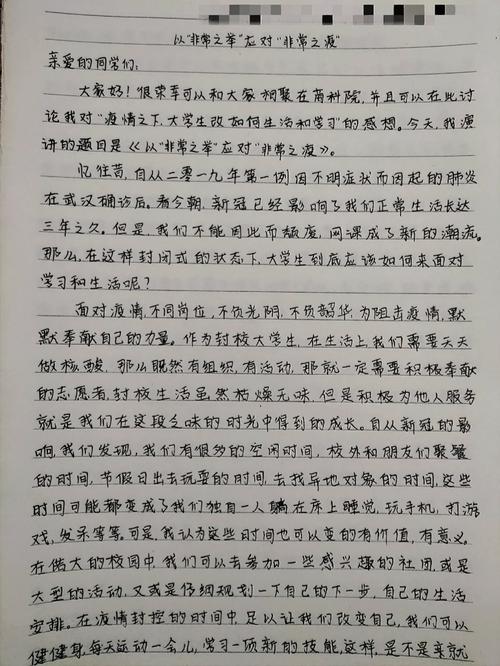 以“非常之举”应对“非常之疫”
亲爱的同学们:
大家好!很荣幸可以和大家相聚在商科院,并且可以在此讨
论我对“疫情之下,大学生改如何生活和学习”的感想。今天,我演
讲的题目是《以“非常之举”应对“非常之疫”》。
忆往昔,自从二零一九年第一例因不明症状而因起的肺炎
在武汉确诊后。看今朝,新冠已经影响了我们正常生活长达
三年之久。但是,我们不能因此而颓废,网课成了新的潮流。
那么,在这样封闭式的状态下,大学生到底应该如何来面对
学习和生活呢?
面对疫情,不同岗位,不负光阴,不负韶华,为阻击疫情,默
默奉献自己的力量。作为封校大学生,在生活上,我们需要天天
做核酸,那么既然有组织,有活动,那就一定需要积极奉献
的志愿者,封校生活虽然枯燥无味,但是积极为他人服务
就是我们在这段乏味的时光中得到的成长。自从新冠的影
响,我们发现,我们有很多的空闲时间,校外和朋友们聚餐
的时间,节假日出去玩耍的时间,去找异地对象的时间,这些
时间可能都变成了我们独自一人躺在床上睡觉,玩手机,打游
戏,发呆等等。可是,我认为这些时间也可以变的有价值,有意义。
在偌大的校园中,我们可以去参加一些感兴趣的社团,或是
大型的活动,又或是仔细规划一下自己的下一步,自己的生活
安排。在疫情封控的时间中,足以让我们改变自己,我们可以
健健身,每天运动一会儿,学习一项新的技能,这样,是不是来就